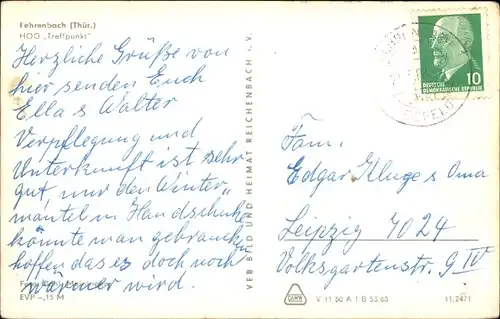 Fehrenbach (Thür.)
HOG „Treffpunkt"
Herzliche Grüße von
hier senden Euch
Ella & Walter
Verpflegung und
Unterkunft ist sehr
gut, nur den Winter„
mantel u Handschuh
könnte man gebrauchen
hoffen das es doch noch
wärmer wird.
EVP –,15 M
VEB BILD UND HEIMAT REICHENBACH i. V.
10
DEUTSCHE
DEMOKRATISCHE REPUBLIK
Fam.
Edgar Kluge & Oma
Leipzig 7024
Volksgartenstr. 9 IV
V 11 50 A 1 B 5565
11.2471